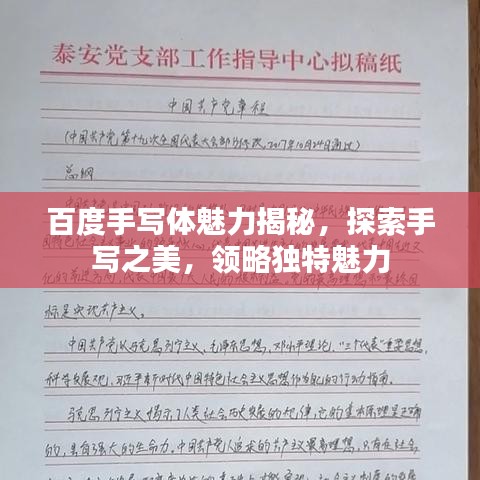 泰安党支部工作指导中心拟稿纸
中国共产党章程
(中国共产党第十九次全国代表大会部分修改,2017年10月24日通过)
总纲
百度手写体魅力揭秘，探索手
写之美，领略独特魅力
标是实现共产主义。
中国共产党以马克思列宁主义、毛泽东思想、邓小平理论、"三个代表"重要思想、
科学发展观、习近平新时代中国特色社会主义思想作为自己的行动指南。
马克思列宁主义揭示了人类社会历史发展的规律,它的基本原理是正确
的,具有强大的生命力。中国共产党人追求的共产主义最高理想,只有在社会